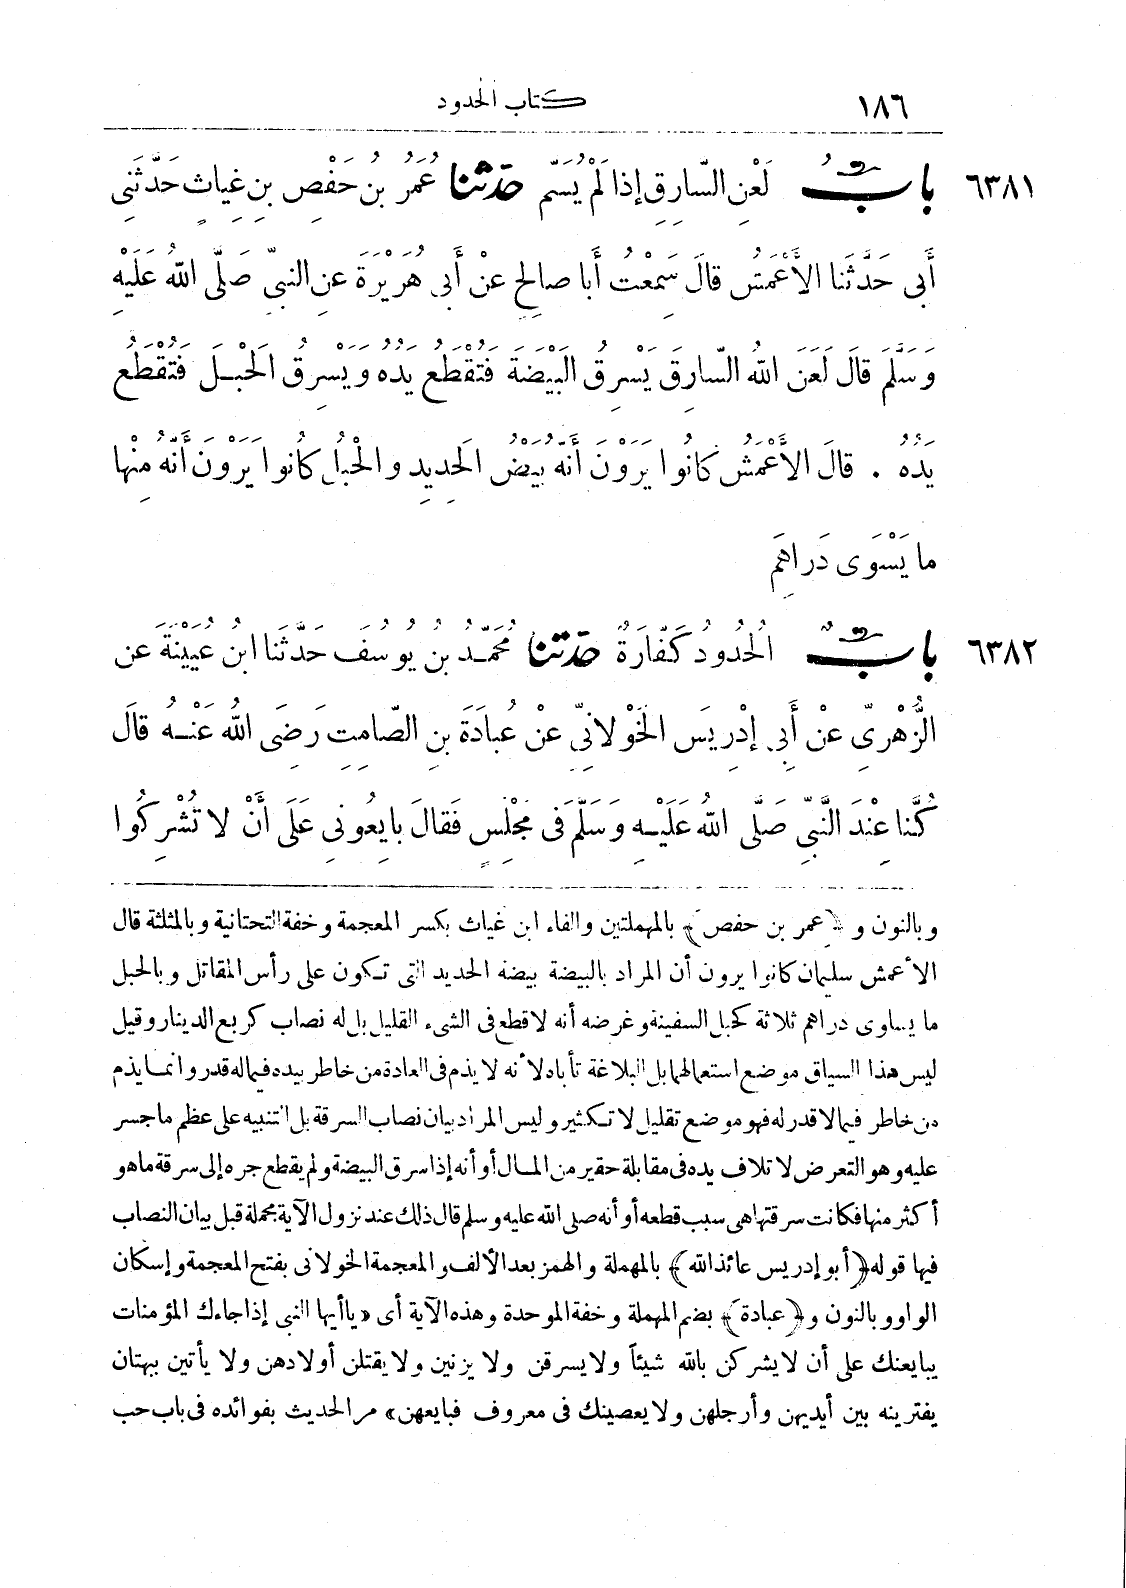 ١٨٦ كتاب الحدود
٦٣٨١ بابُ لَعْنِ السَّارِقِ إِذَا لَمْ يُسَمَّ حَدَّثَنَا عُمَرُ بْنُ حَفْصِ بْنِ غِيَاثٍ حَدَّثَنِي
أَبِي حَدَّثَنَا الأَعْمَشُ قَالَ سَمِعْتُ أَبَا صَالِحٍ عَنْ أَبِي هُرَيْرَةَ عَنِ النَّبِيِّ صَلَّى اللهُ عَلَيْهِ
وَسَلَّمَ قَالَ لَعَنَ اللهُ السَّارِقَ يَسْرِقُ الْبَيْضَةَ فَتُقْطَعُ يَدُهُ وَيَسْرِقُ الْحَبْلَ فَتُقْطَعُ
يَدُهُ . قَالَ الأَعْمَشُ كَانُوا يَرَوْنَ أَنَّهُ بَيْضُ الْحَدِيدِ وَالْحَبْلُ كَانُوا يَرَوْنَ أَنَّهُ مِنْهَا
مَا يَسْوَى دَرَاهِمَ
٦٣٨٢ بابٌ الْحُدُودُ كَفَّارَةٌ حَدَّثَنَا مُحَمَّدُ بْنُ يُوسُفَ حَدَّثَنَا ابْنُ عُيَيْنَةَ عَنِ
الزُّهْرِيِّ عَنْ أَبِي إِدْرِيسَ الْخَوْلَانِيِّ عَنْ عُبَادَةَ بْنِ الصَّامِتِ رَضِيَ اللهُ عَنْهُ قَالَ
كُنَّا عِنْدَ النَّبِيِّ صَلَّى اللهُ عَلَيْهِ وَسَلَّمَ فِي مَجْلِسٍ فَقَالَ بَايِعُونِي عَلَى أَنْ لَا تُشْرِكُوا
وبالنون و ﴿عمر بن حفص﴾ بالمهملتين والفاء ابن غياث بكسر المعجمة وخفة التحتانية وبالمثلثة قال
الأعمش سليمان كانوا يرون أن المراد بالبيضة بيضة الحديد التي تكون على رأس المقاتل وبالحبل
ما يساوى دراهم ثلاثة كحبل السفينة وغرضه أنه لا قطع في الشيء القليل بل له نصاب كربع الدينار وقيل
ليس هذا السياق موضع استعمالهما بل البلاغة تأباه لأنه لا يذم في العادة من خاطر بيده فيما له قدر وانما يذم
من خاطر فيما لا قدر له فهو موضع تقليل لا تكثير وليس المراد بيان نصاب السرقة بل التنبيه على عظم ما جسر
عليه وهو التعرض لاتلاف يده في مقابلة حقير من المال أو أنه إذا سرق البيضة ولم يقطع جره إلى سرقة ما هو
أكثر منها فكانت سرقتها هي سبب قطعه أو أنه صلى الله عليه وسلم قال ذلك عند نزول الآية مجملة قبل بيان النصاب
فيها قوله ﴿أبو إدريس عائذ الله﴾ بالمهملة والهمز بعد الألف والمعجمة الخولاني بفتح المعجمة وإسكان
الواو وبالنون و ﴿عبادة﴾ بضم المهملة وخفة الموحدة وهذه الآية أى «يا أيها النبي إذا جاءك المؤمنات
يبايعنك على أن لا يشركن بالله شيئاً ولا يسرقن ولا يزنين ولا يقتلن أولادهن ولا يأتين ببهتان
يفترينه بين أيديهن وأرجلهن ولا يعصينك في معروف فبايعهن» مر الحديث بفوائده في باب حب